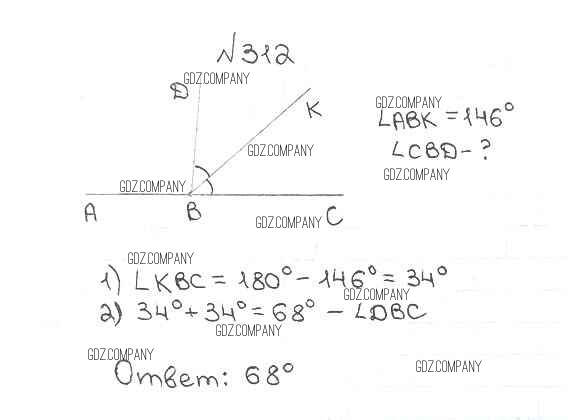 №312
GDZ.COMPANY
D
K
GDZ.COMPANY
GDZ.COMPANY
A B C
GDZ.COMPANY
GDZ.COMPANY
∠ABK = 146°
∠CBD - ?
GDZ.COMPANY
GDZ.COMPANY
1) ∠KBC = 180° - 146° = 34°
GDZ.COMPANY
2) 34° + 34° = 68° - ∠DBC
GDZ.COMPANY
GDZ.COMPANY
Ответ: 68°
GDZ.COMPANY